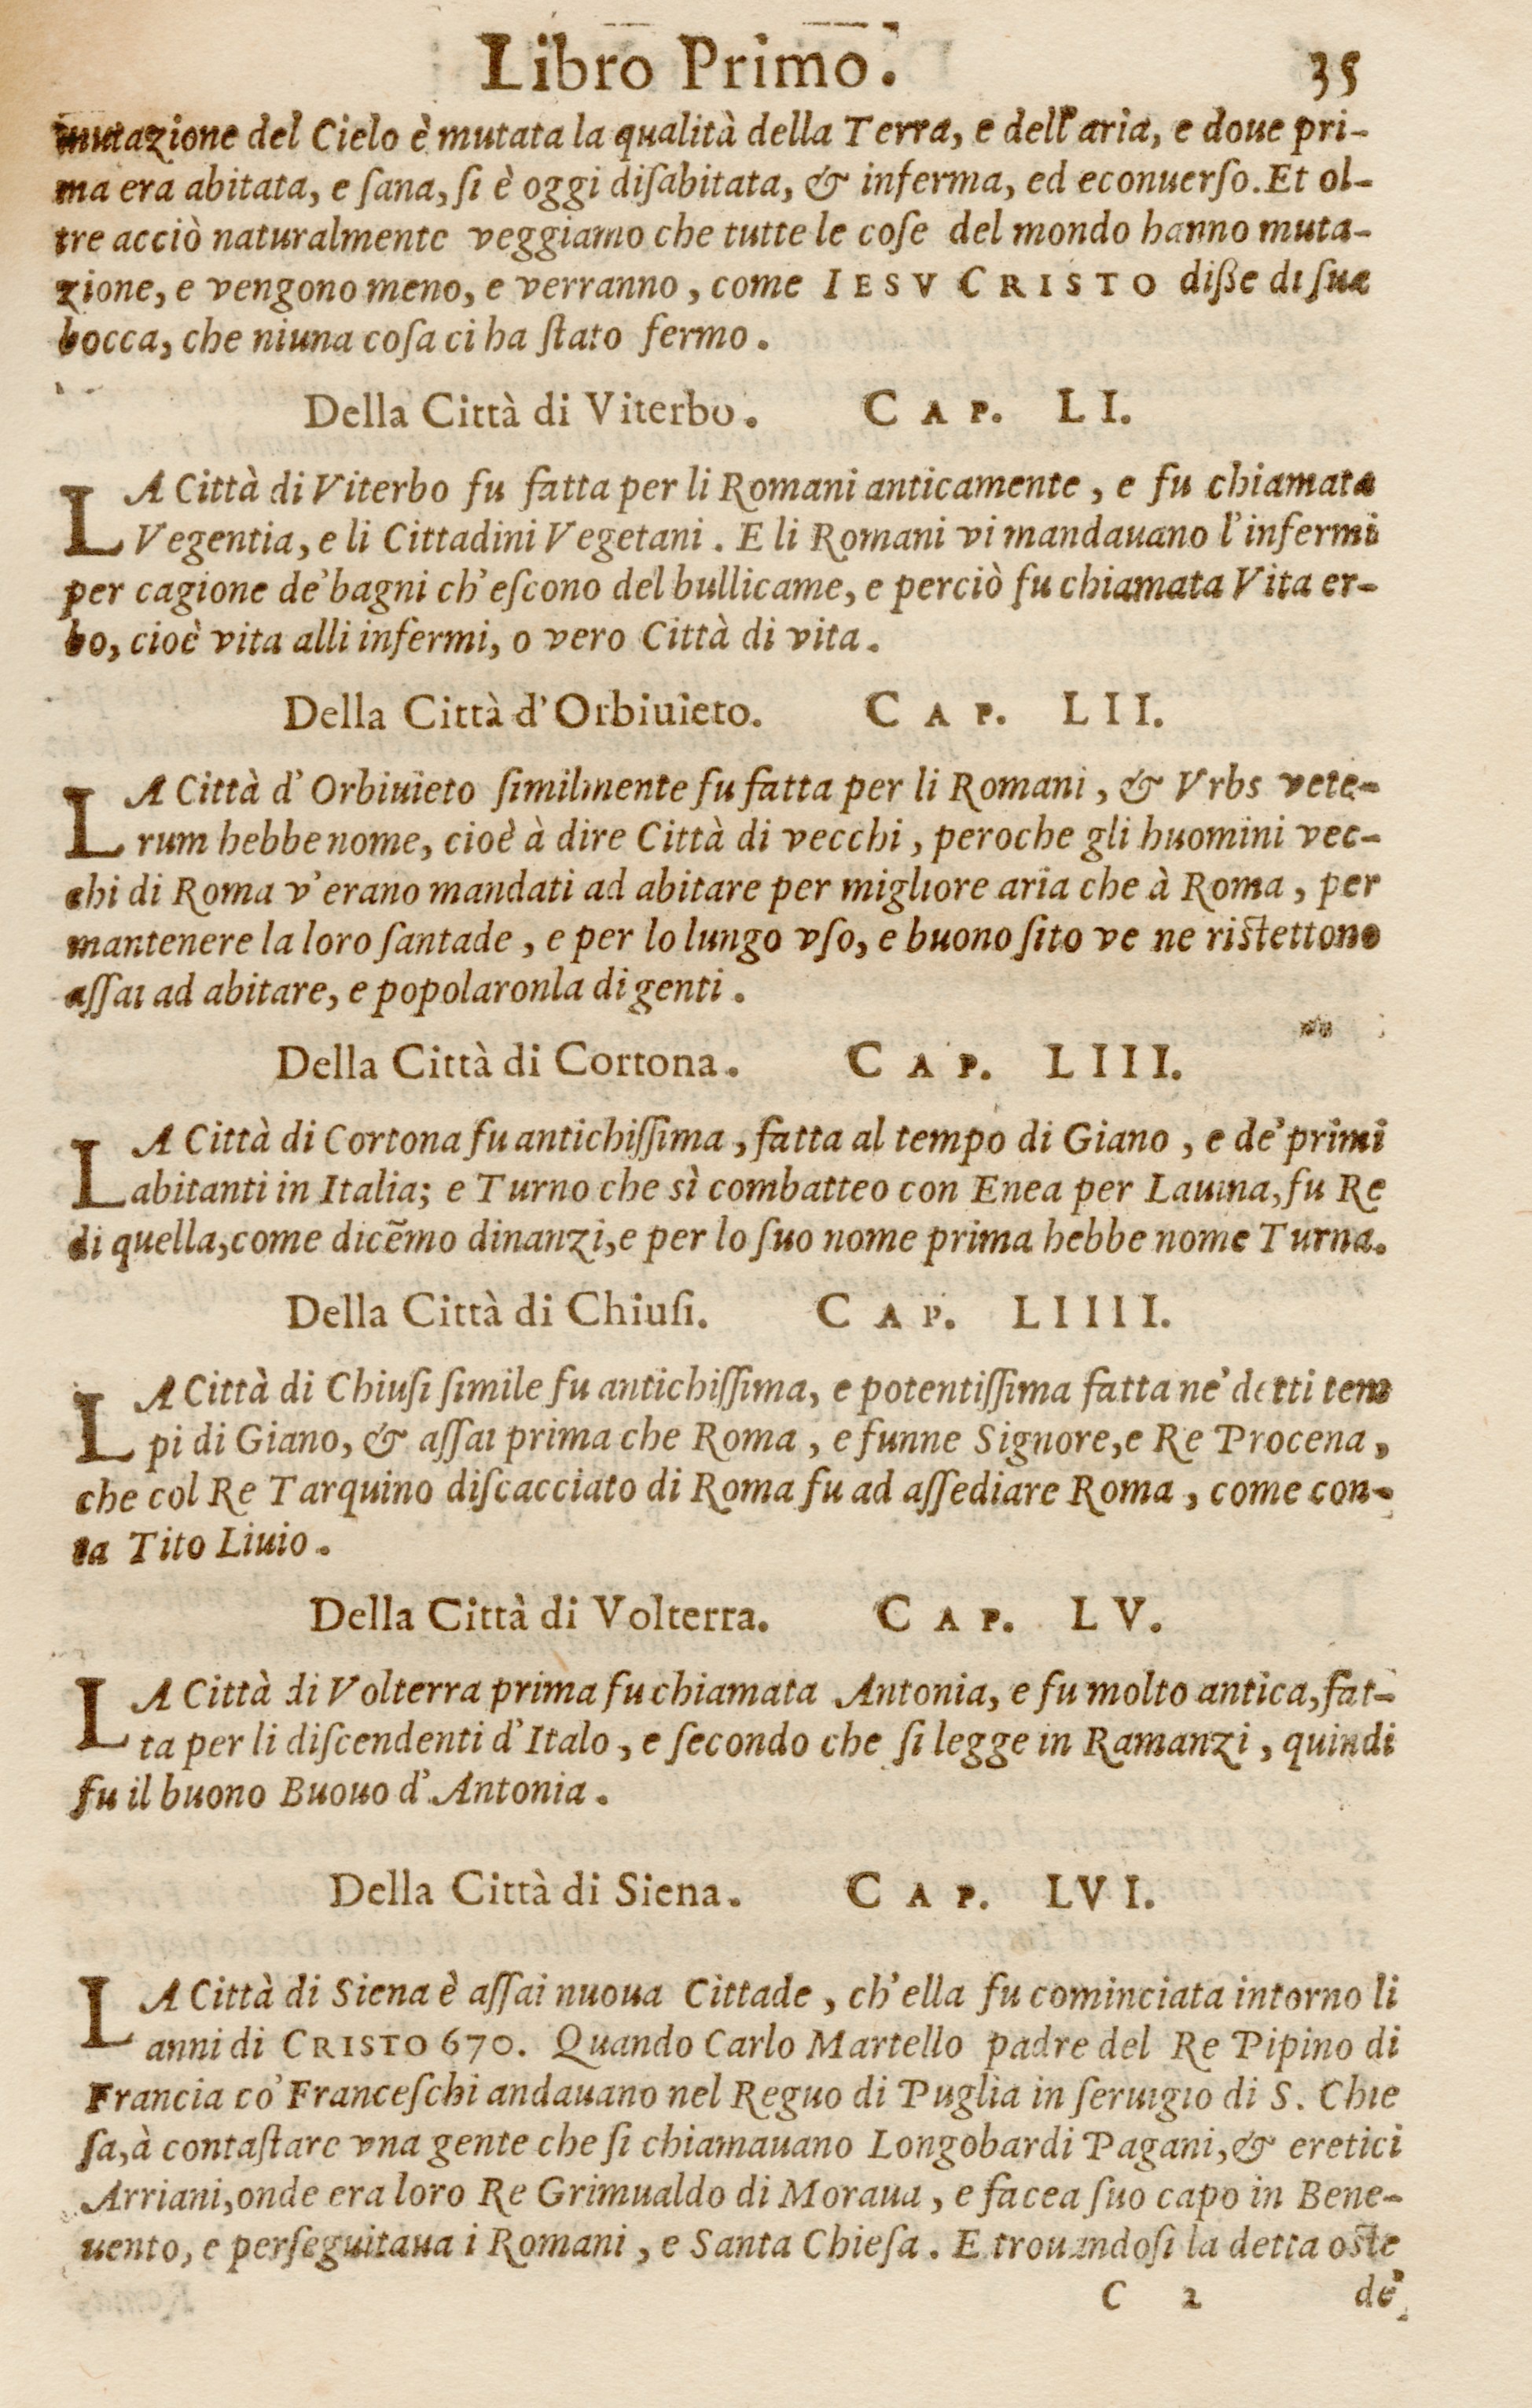 Libro Primo. 35
mutazione del Cielo è mutata la qualità della Terra, e dell'aria, e doue pri-
ma era abitata, e ſana, ſi è oggi diſabitata, & inferma, ed econuerſo. Et ol-
tre acciò naturalmente veggiamo che tutte le coſe del mondo hanno muta-
zione, e vengono meno, e verranno, come IESV CRISTO diſſe di ſua
bocca, che niuna coſa ci ha ſtato fermo.
Della Città di Viterbo. CAP. LI.
LA Città di Viterbo fu fatta per li Romani anticamente, e fu chiamata
Vegentia, e li Cittadini Vegetani. E li Romani vi mandauano l'infermi
per cagione de' bagni ch'eſcono del bullicame, e perciò fu chiamata Vita er-
bo, cioè vita alli infermi, o vero Città di vita.
Della Città d'Orbiuieto. CAP. LII.
LA Città d'Orbiuieto ſimilmente fu fatta per li Romani, & Vrbs vete-
rum hebbe nome, cioè à dire Città di vecchi, peroche gli huomini vec-
chi di Roma v'erano mandati ad abitare per migliore aria che à Roma, per
mantenere la loro ſantade, e per lo lungo vſo, e buono ſito ve ne riſtettono
aſſai ad abitare, e popolaronla di genti.
Della Città di Cortona. CAP. LIII.
LA Città di Cortona fu antichiſſima, fatta al tempo di Giano, e de' primi
abitanti in Italia; e Turno che sì combatteo con Enea per Lauina, fu Re
di quella, come dicẽmo dinanzi, e per lo ſuo nome prima hebbe nome Turna.
Della Città di Chiuſi. CAP. LIIII.
LA Città di Chiuſi ſimile fu antichiſſima, e potentiſſima fatta ne' detti tem
pi di Giano, & aſſai prima che Roma, e funne Signore, e Re Procena,
che col Re Tarquino diſcacciato di Roma fu ad aſſediare Roma, come con-
ta Tito Liuio.
Della Città di Volterra. CAP. LV.
LA Città di Volterra prima fu chiamata Antonia, e fu molto antica, fat-
ta per li diſcendenti d'Italo, e ſecondo che ſi legge in Ramanzi, quindi
fu il buono Buouo d'Antonia.
Della Città di Siena. CAP. LVI.
LA Città di Siena è aſſai nuoua Cittade, ch'ella fu cominciata intorno li
anni di CRISTO 670. Quando Carlo Martello padre del Re Pipino di
Francia co' Franceſchi andauano nel Reguo di Puglia in ſeruigio di S. Chie
ſa, à contaſtare vna gente che ſi chiamauano Longobardi Pagani, & eretici
Arriani, onde era loro Re Grimualdo di Moraua, e facea ſuo capo in Bene-
uento, e perſeguitaua i Romani, e Santa Chieſa. E trouandoſi la detta oſte
C 2 de'